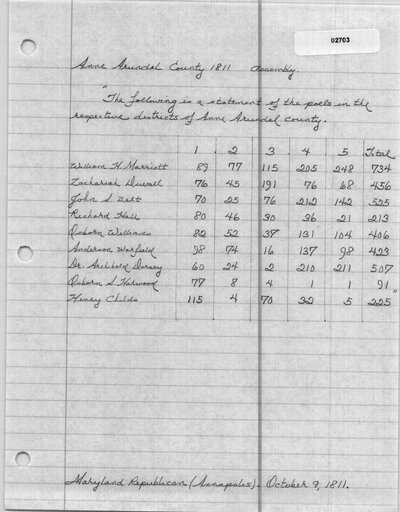 02703
Anne Arundel County 1811 Assembly.
"The following is a statement of the polls in the
respective districts of Anne Arundel County.
1 2 3 4 5 Total
William H. Marriott 89 77 115 205 248 734
Zachariah Duvall 76 45 191 76 68 456
John S. Belt 70 25 76 212 142 525
Richard Hall 80 46 30 36 21 213
Osborn Williams 82 52 37 131 104 406
Anderson Warfield 98 74 16 137 98 423
Dr. Archibald Dorsey 60 24 2 210 211 507
Osborn S. Harwood 77 8 4 1 1 91
Henry Childs 115 4 70 32 5 225"
Maryland Republican (Annapolis). October 9, 1811.